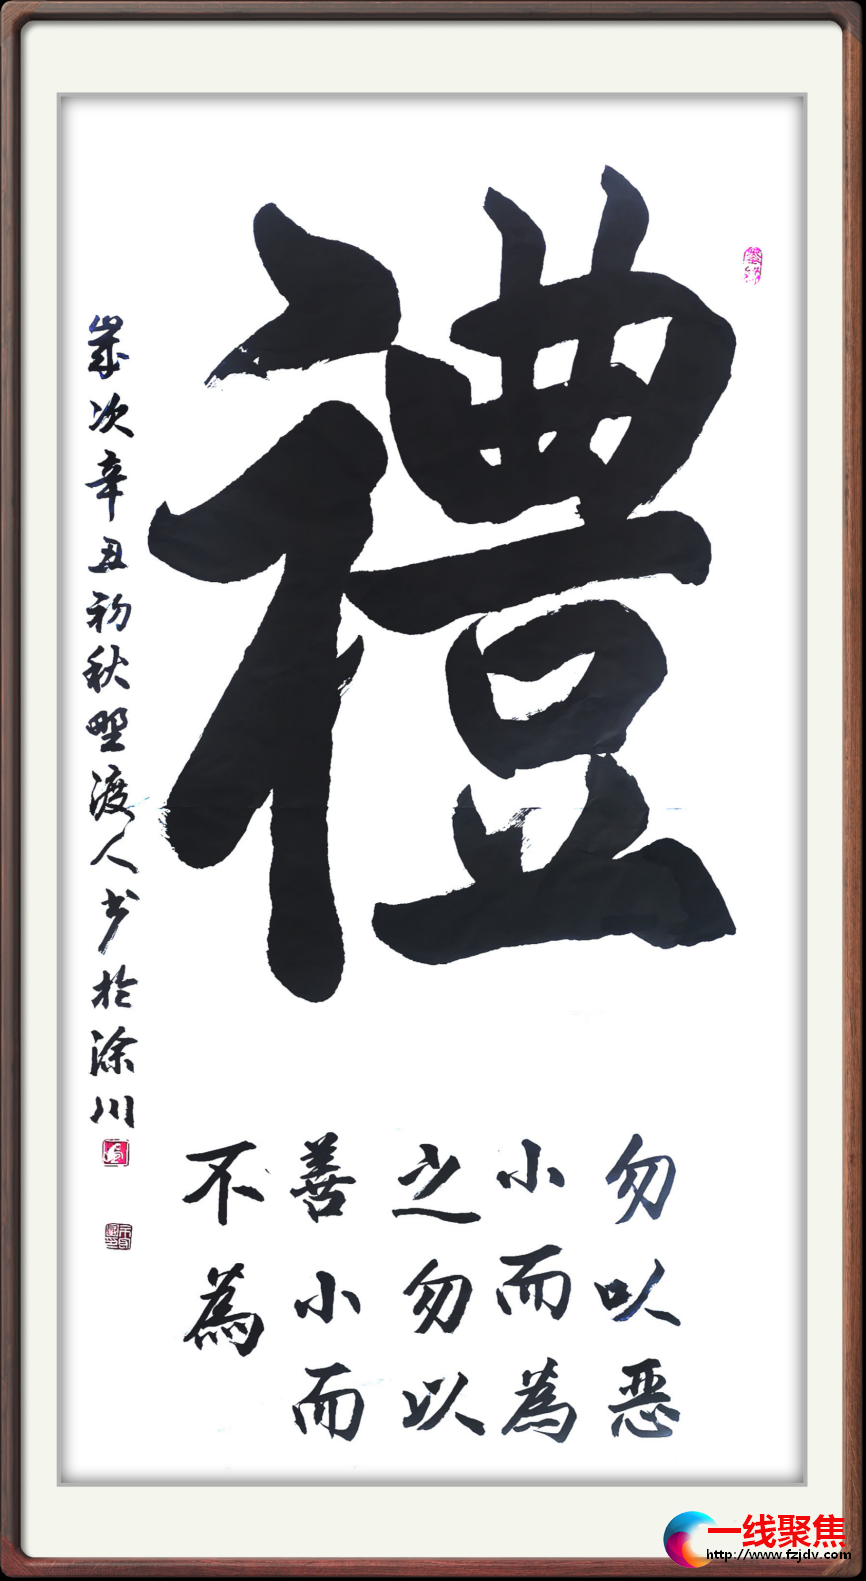 禮
勿以恶
小而為
之勿以
善小而
不為
歲次辛丑初秋野渡人书於涂川
一线聚焦
http://www.fzjdv.com